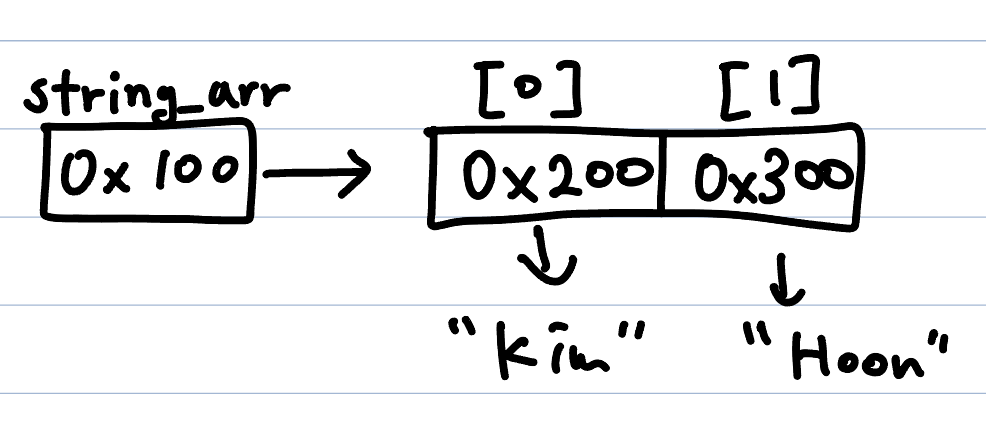 string_arr [0] [1]
0x100 0x200 0x300
"Kim" "Hoon"